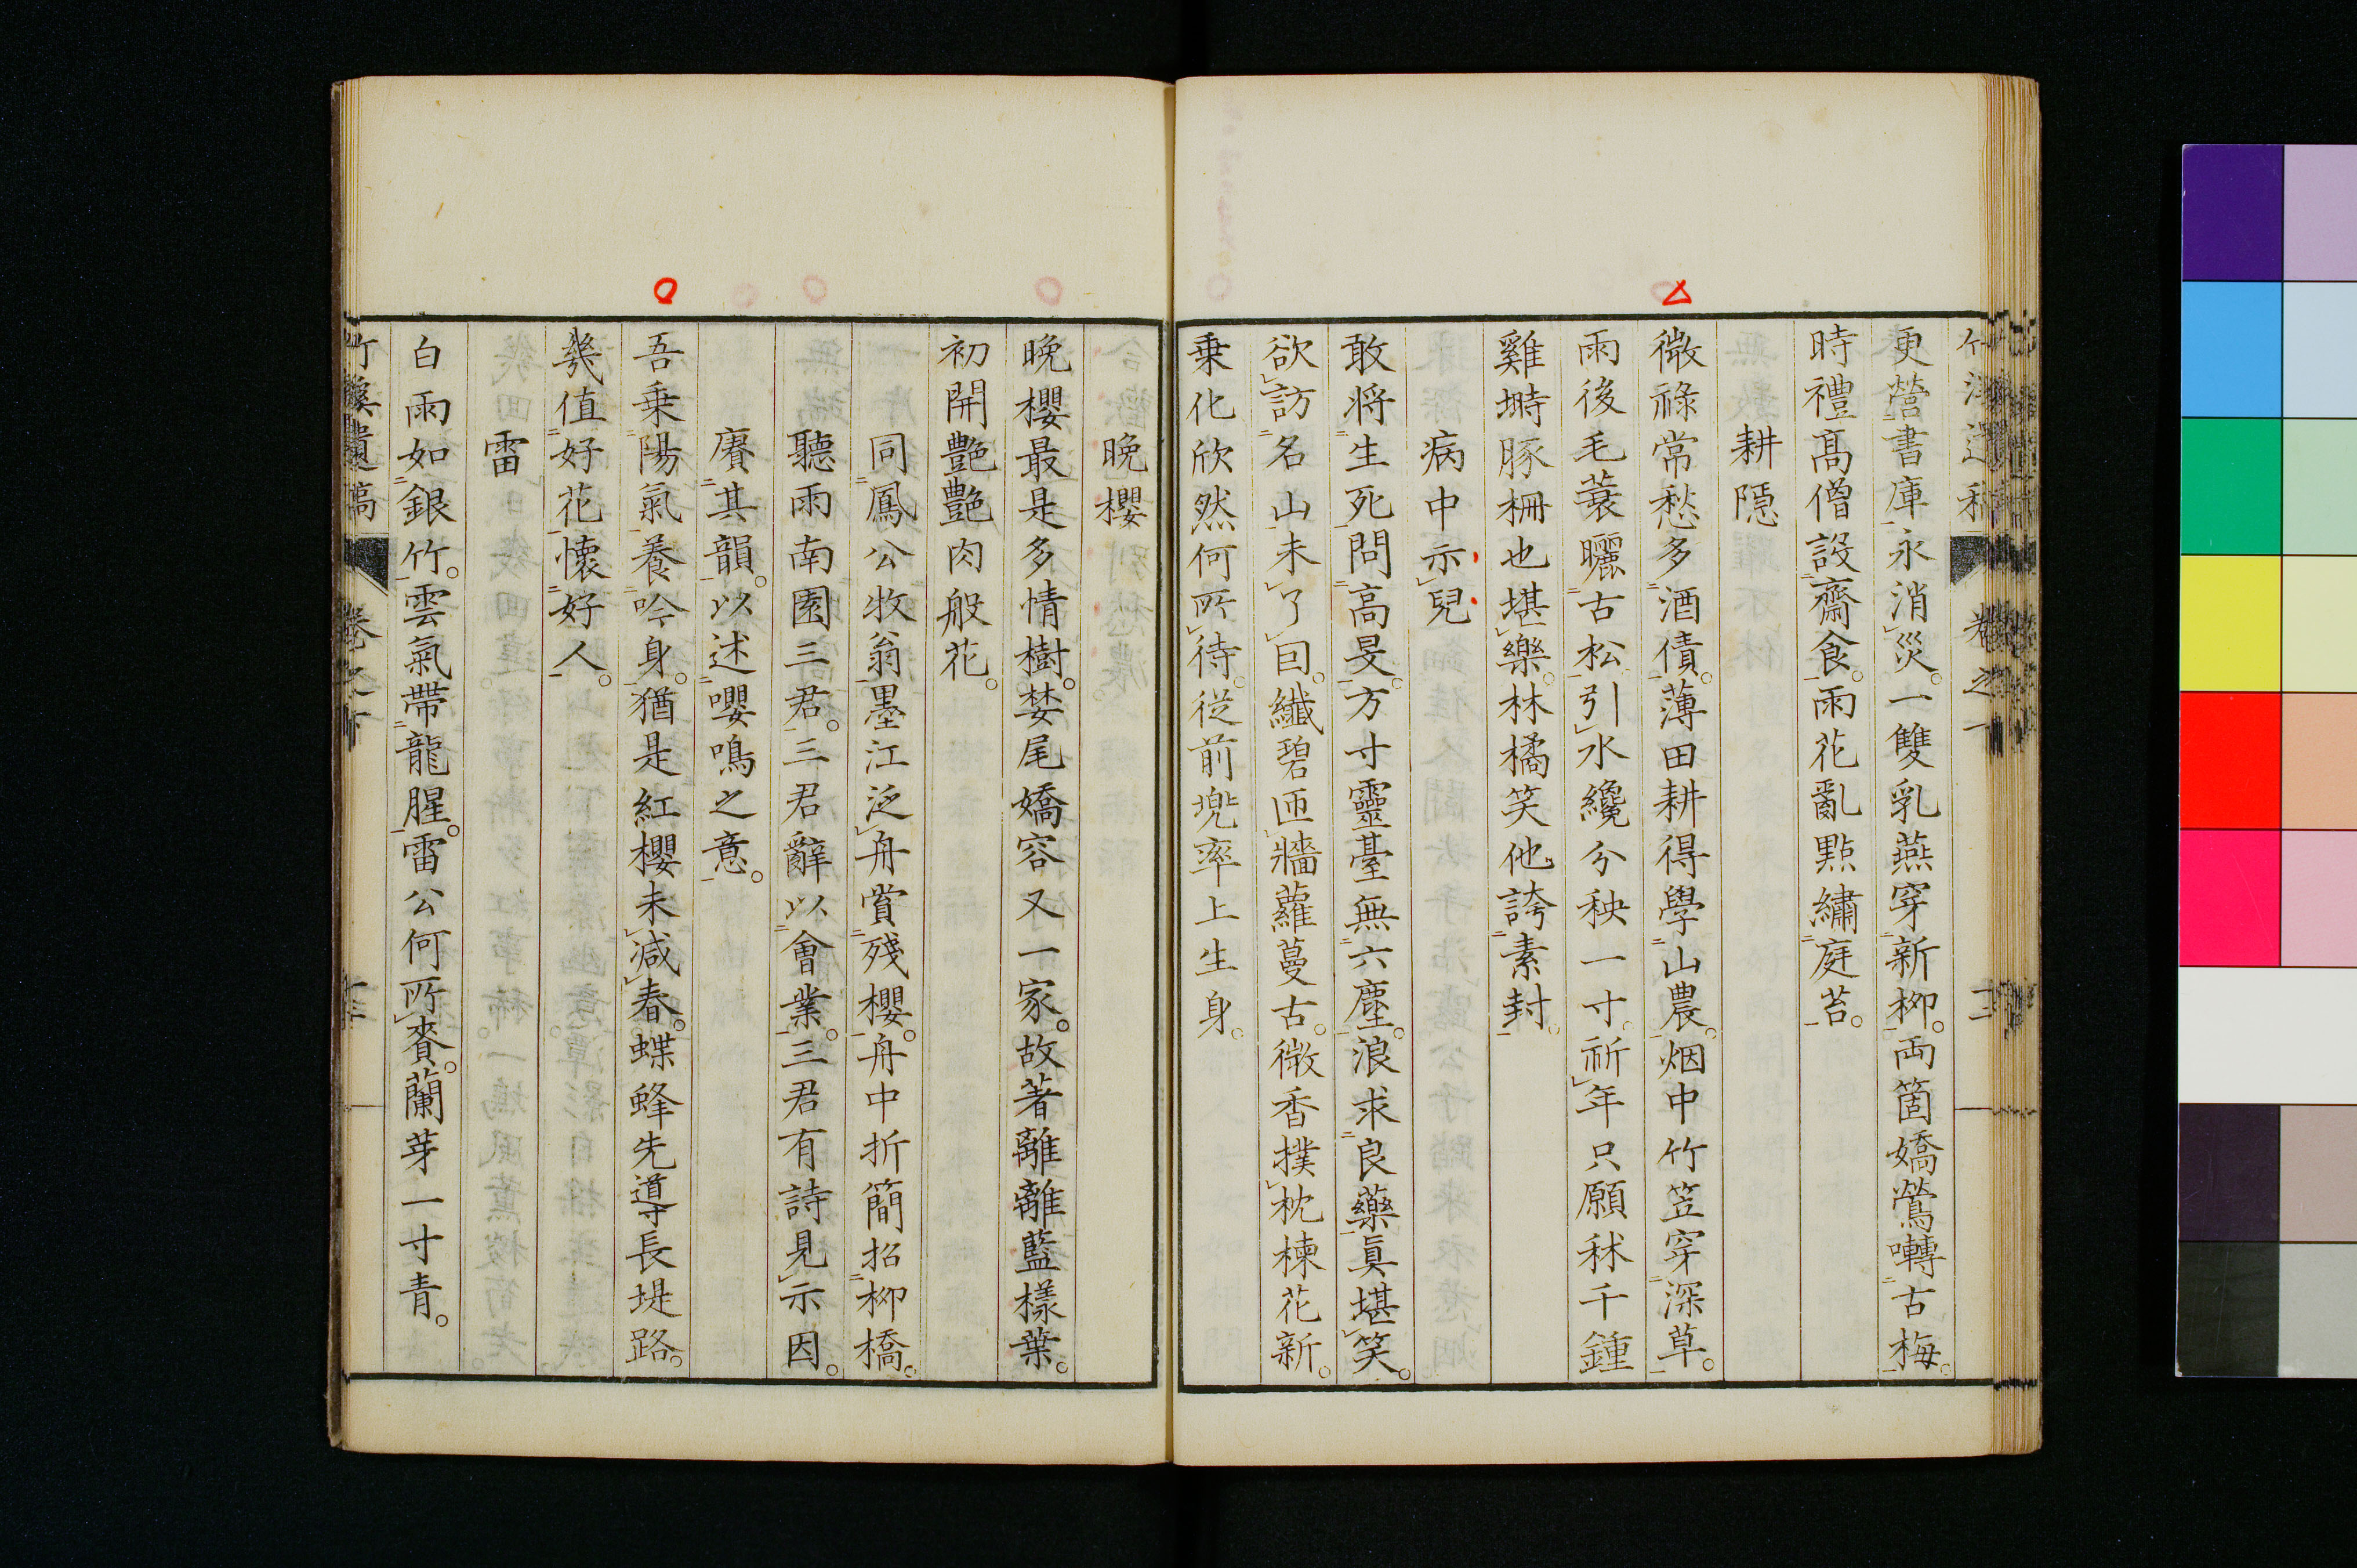 更營書庫永消災。一雙乳燕穿新柳。両箇嬌鶯囀古梅。
時禮髙僧設齋食。雨花亂點繡庭苔。
耕隱
微祿常愁多酒債。薄田耕得學山農。烟中竹笠穿深草。
雨後毛蓑曬古松。引水纔分秧一寸。祈年只願秫千鍾
雞塒豚柵也堪樂。林橘笑他誇素封。
病中示兒
敢将生死問高旻。方寸靈臺無六塵。浪求良藥真堪笑。
欲訪名山未了囙。纖碧匝牆蘿蔓古。微香撲枕楝花新。
乗化欣然何所待。従前兠率上生身。
晚櫻
晚櫻最是多情樹。婪尾嬌容又一家。故著離離藍樣葉。
初開艶艶肉般花。
同鳳公牧翁墨江泛舟賞殘櫻。舟中折簡招柳橋。
聽雨南園三君。三君辭以會業。三君有詩見示因。
賡其韻。以述嚶鳴之意。
吾乗陽氣養吟身。猶是紅櫻未減春。蝶蜂先導長堤路。
幾值好花懷好人。
雷
白雨如銀竹。雲氣帶龍腥。雷公何所賚。蘭芽一寸青。
卷之一